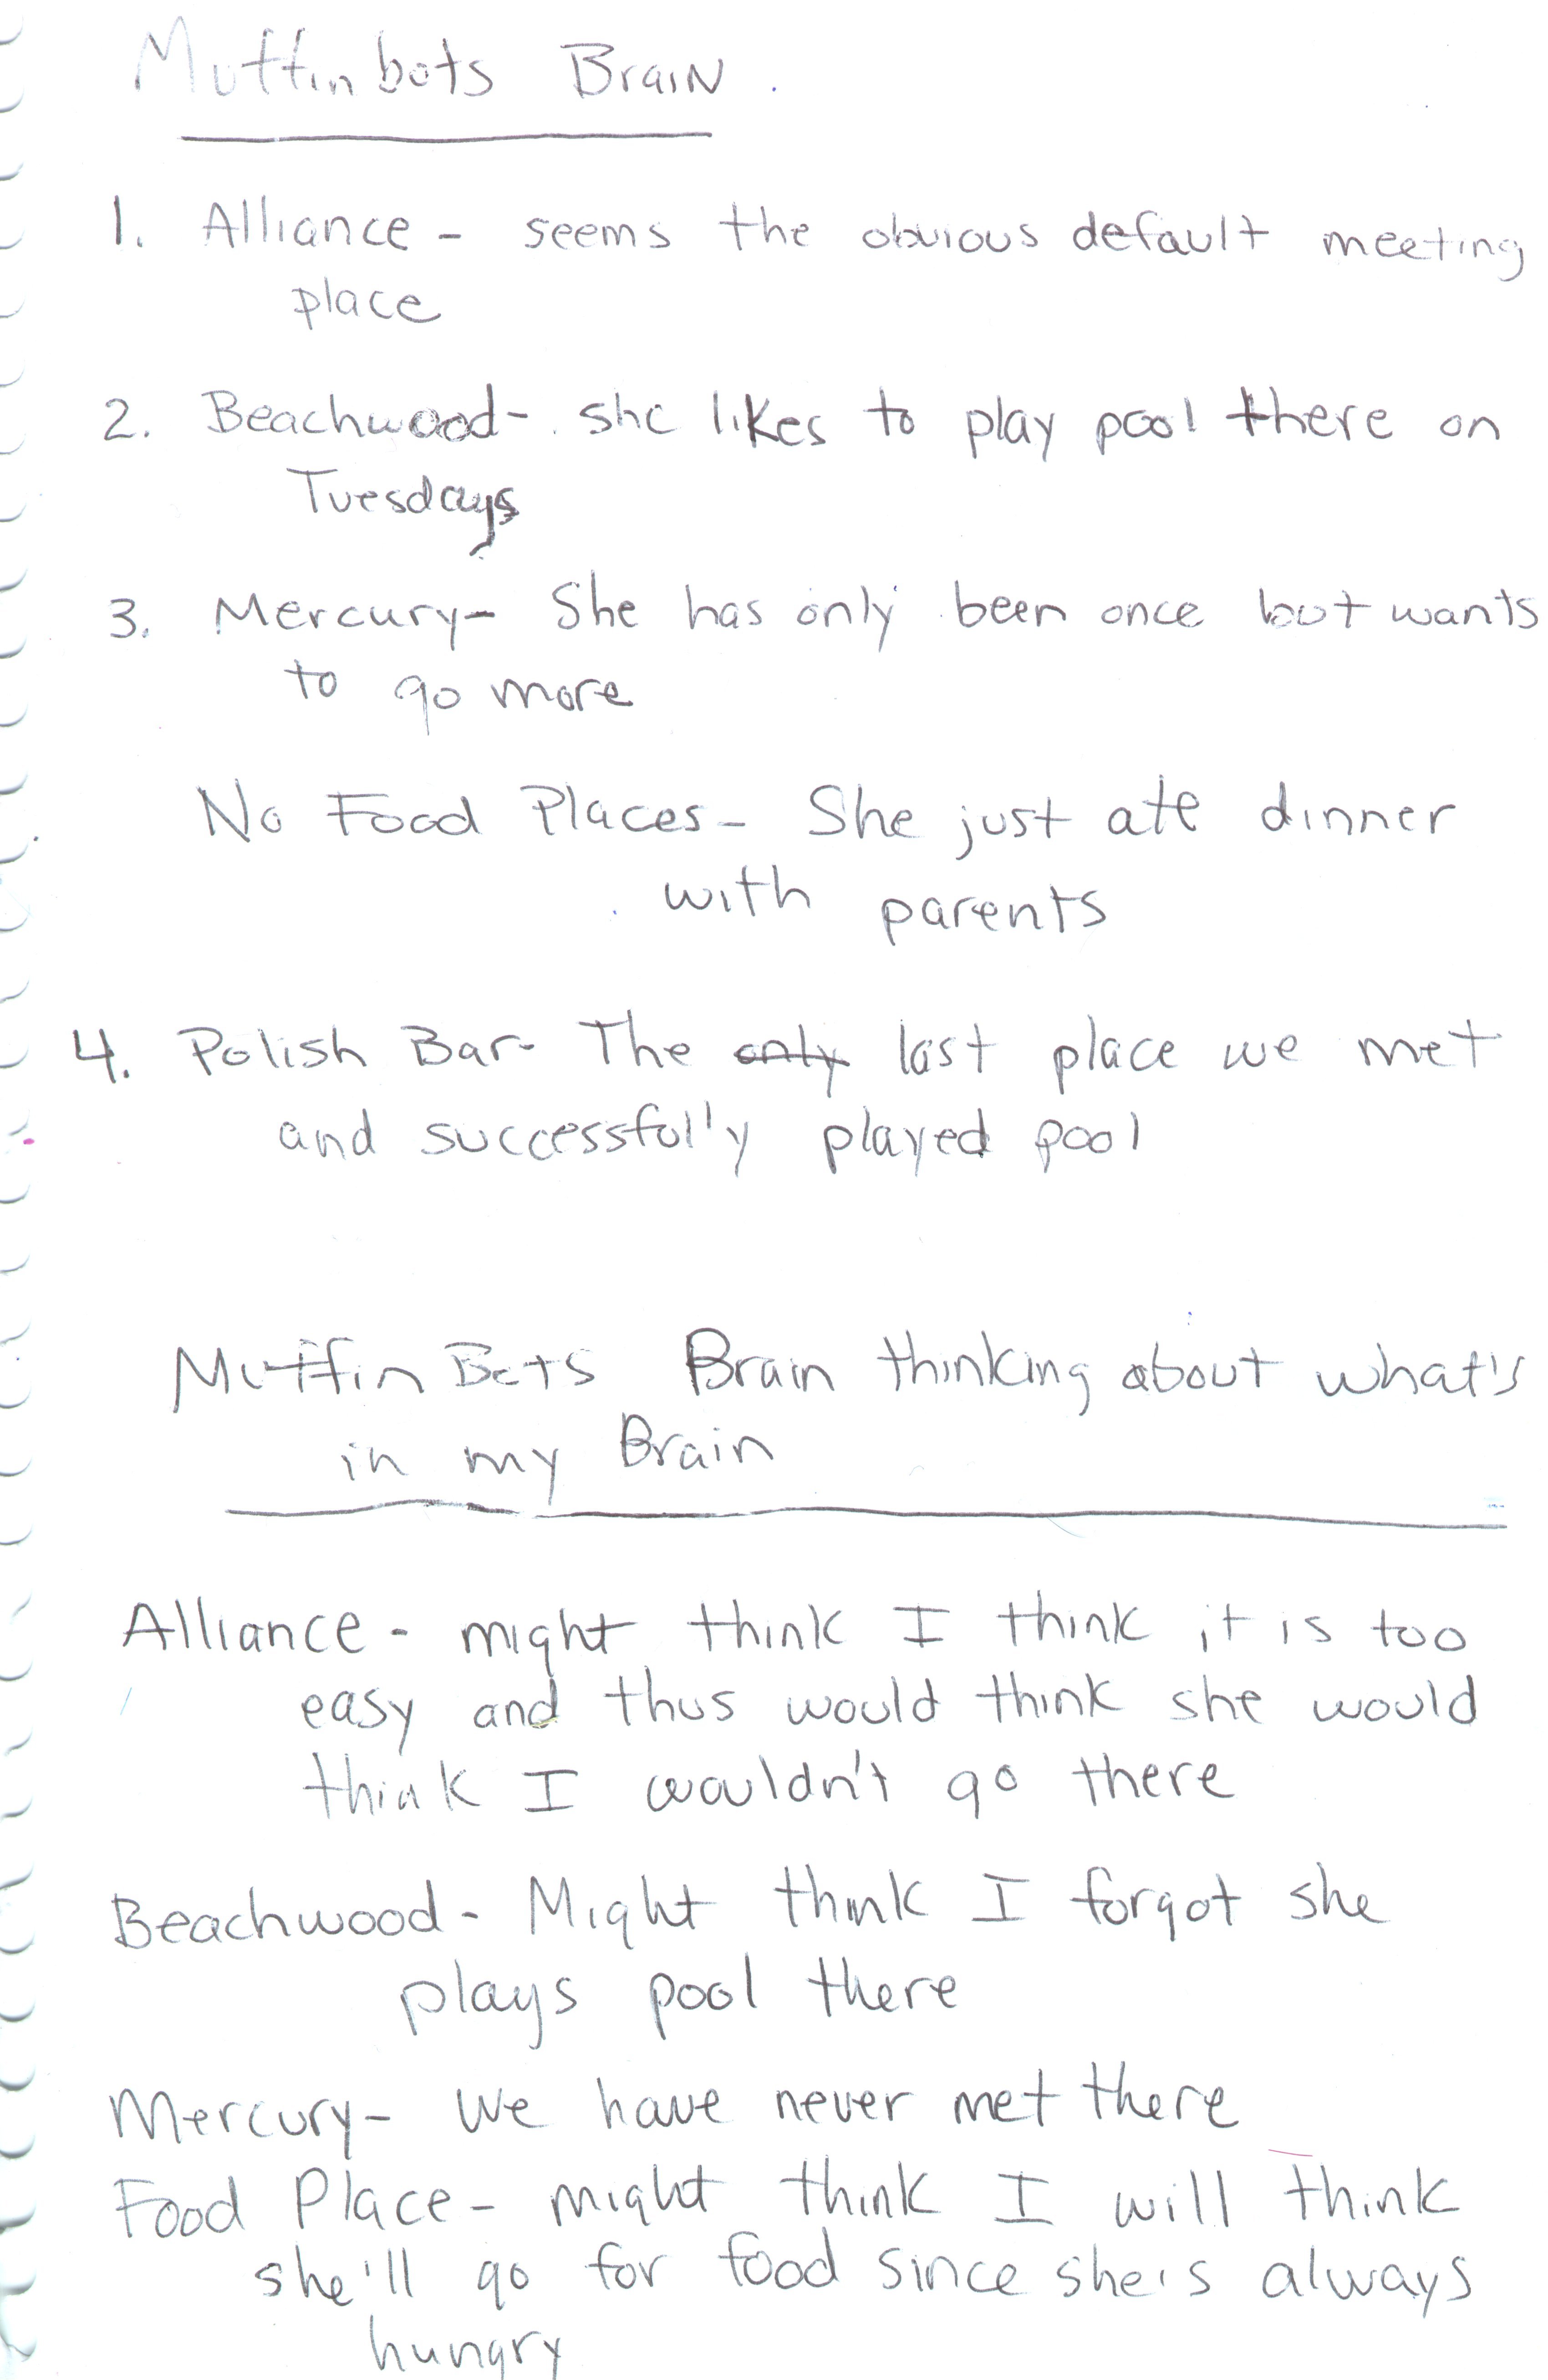 Muffinbots Brain
1. Alliance - seems the obvious default meeting
place
2. Beachwood - she likes to play pool there on
Tuesdays
3. Mercury - She has only been once but wants
to go more
No Food Places - She just ate dinner
with parents
4. Polish Bar - The only last place we met
and successfully played pool
Muffin Bots Brain thinking about what's
in my Brain
Alliance - might think I think it is too
easy and thus would think she would
think I wouldn't go there
Beachwood - Might think I forgot she
plays pool there
Mercury - We have never met there
Food Place - might think I will think
she'll go for food since she's always
hungry